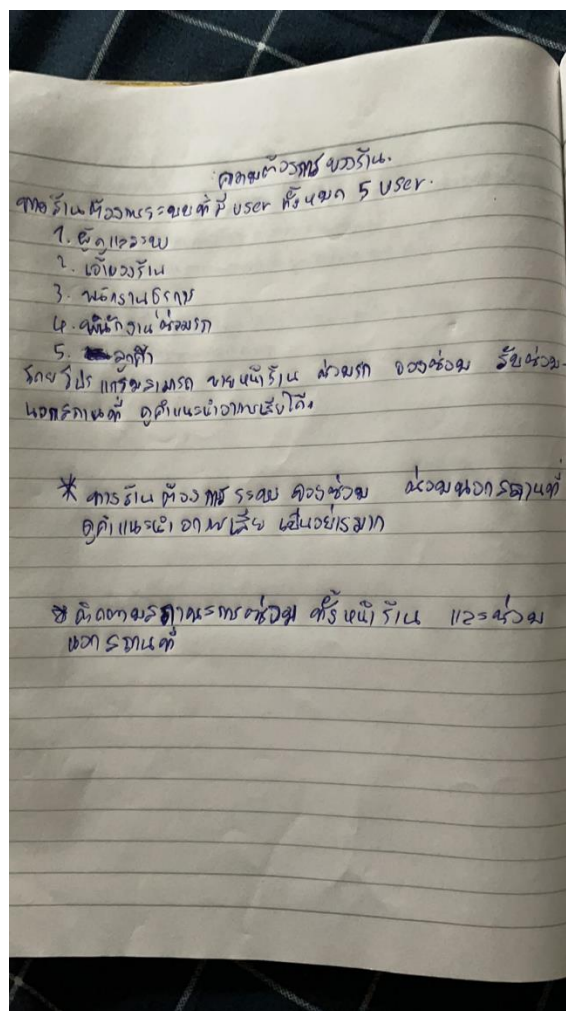 ความต้องการ ของร้าน.
ทางร้านต้องการระบบที่มี user ทั้งหมด 5 user.
1. ผู้ดูแลระบบ
2. เจ้าของร้าน
3. พนักงานธุรการ
4. พนักงานซ่อมรถ
5. ลูกค้า
โดยโปรแกรมสามารถ ขายหน้าร้าน ซ่อมรถ จองซ่อม รับซ่อม
นอกสถานที่ ดูคำแนะนำอาการเสียได้
* ทางร้านต้องการ ระบบ จองซ่อม ซ่อมนอกสถานที่
ดูคำแนะนำ อาการเสีย เป็นอย่างมาก
* ติดตามสถานะการซ่อม ทั้งหน้าร้าน และซ่อม
นอกสถานที่